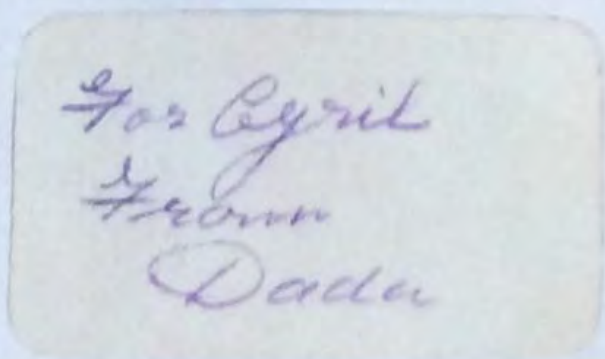 For Cyril
From
Dada